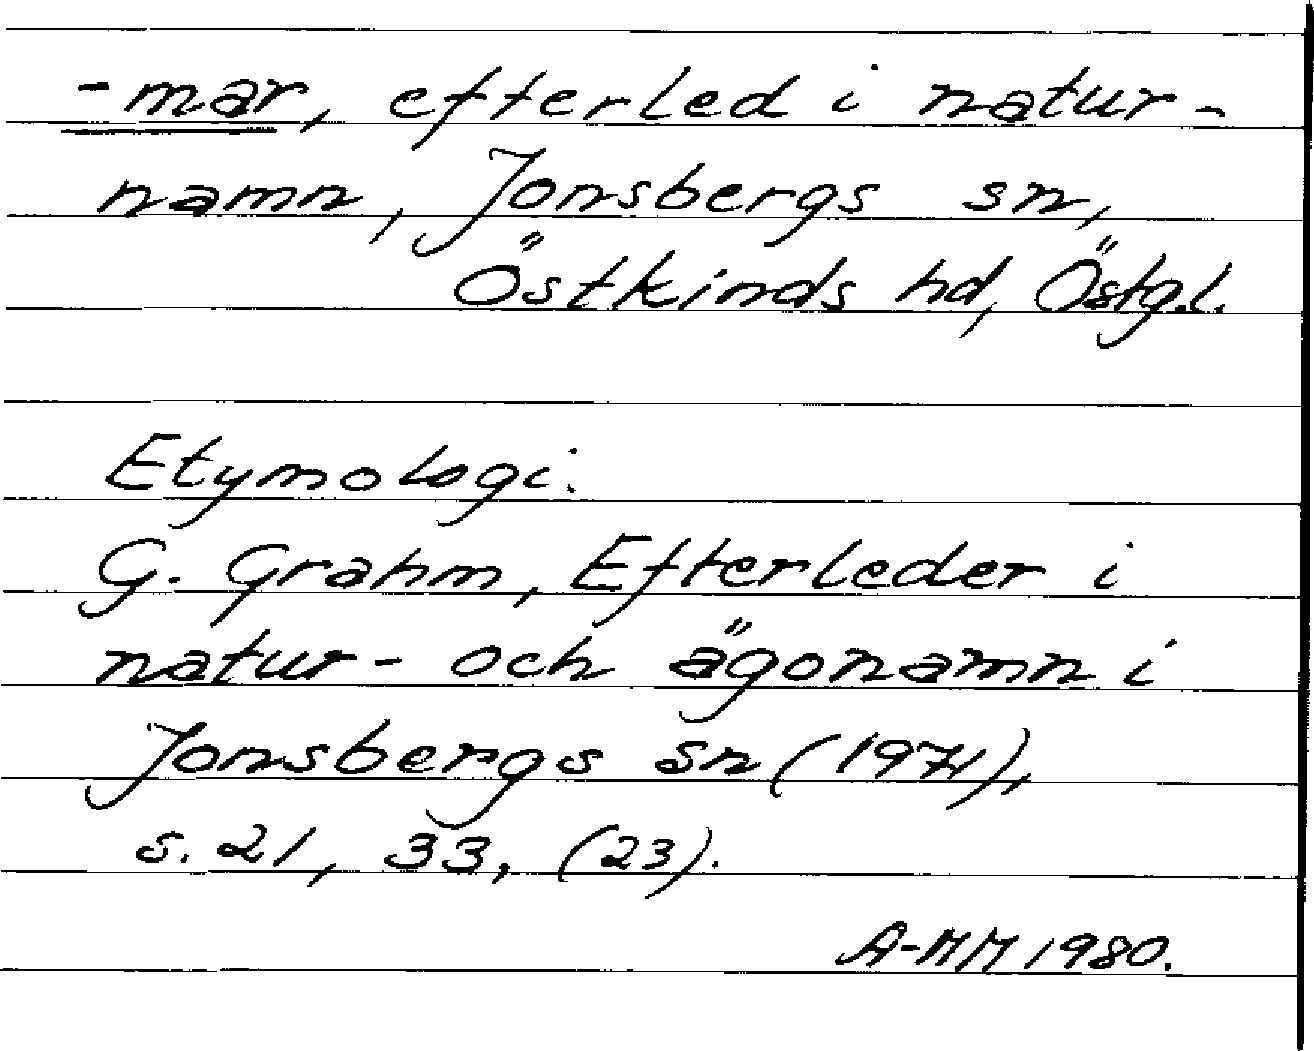 -mar, efterled i natur-
namn, Jonsbergs sn,
Östkinds hd, Östg.l.
Etymologi.
G. Grahm, Efterleder i
natur- och ägonamn i
Jonsbergs sn (1971),
s. 21, 33, (23).
A-MM 1980.